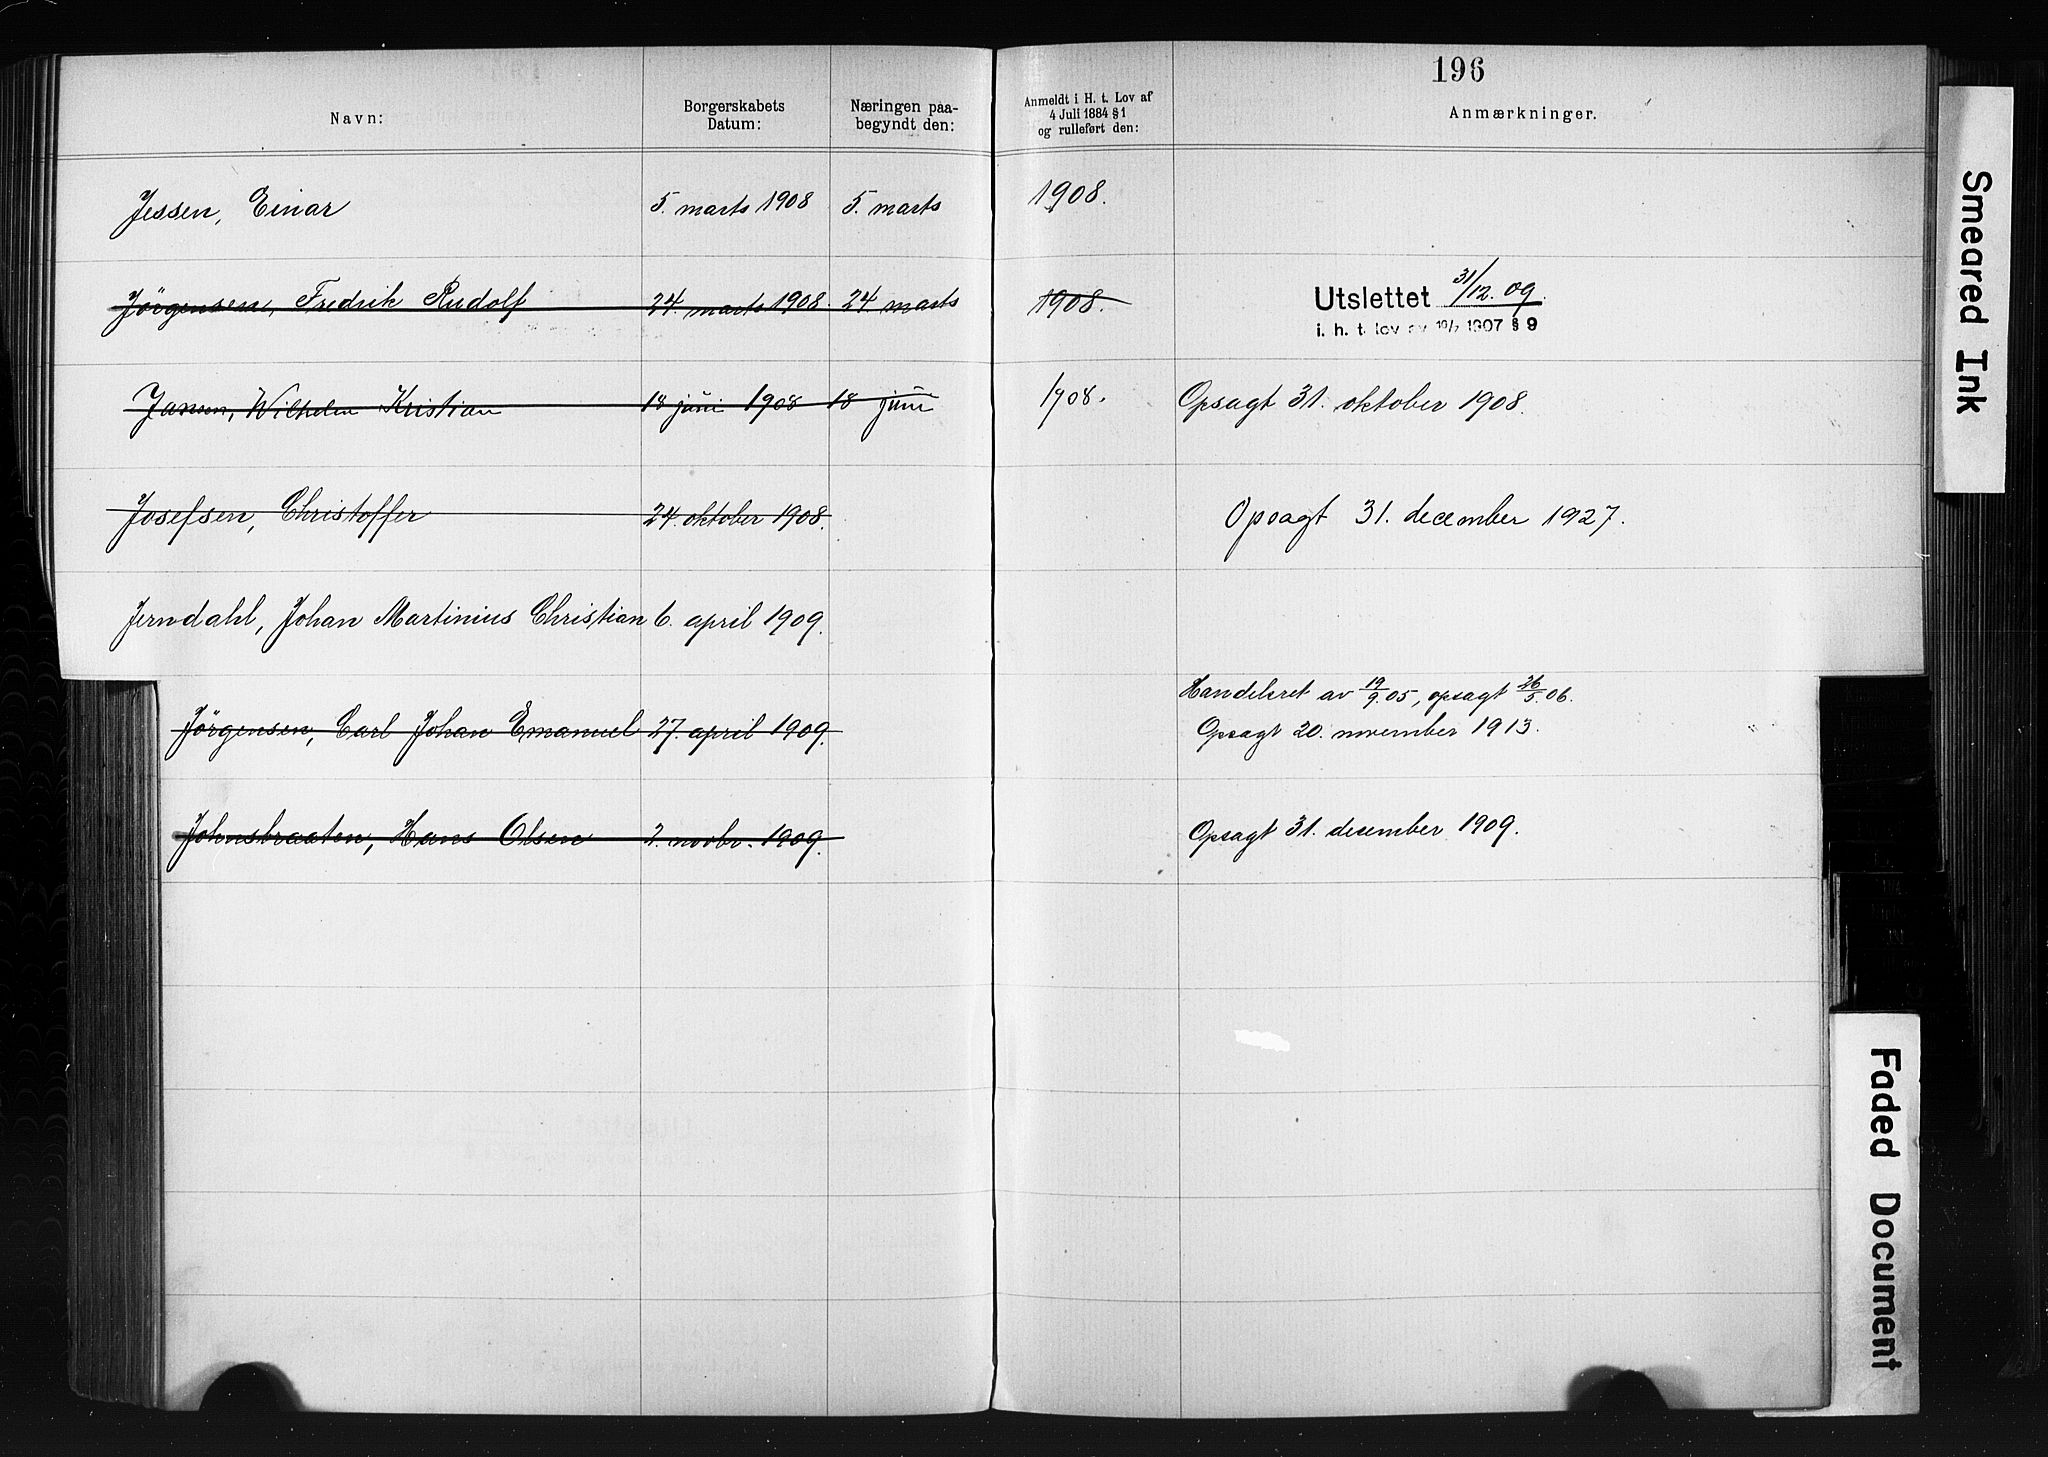 196
Navn: Borgerskabets Datum: Næringen paa-begyndt den: Anmeldt i H. t. Lov af 4 Juli 1884 § 1 og rulleført den: Anmærkninger.
Jessen, Einar 5. marts 1908 5. marts 1908.
Jörgensen, Fredrik Rudolf 24. marts 1908. 24. marts 1908. Utslettet 31/12.09.
i. h. t. lov av 19/7 1907 § 9
Jansen, Wilhelm Kristian 18 juni 1908 18 juni 1908. Opsagt 31. oktober 1908.
Josefsen, Christoffer 24. oktober 1908. Opsagt 31. december 1927.
Jerndahl, Johan Martinius Christian 6. april 1909.
Handelsret av 19/9.05, opsagt 26/5.06.
Jörgensen, Carl Johan Emanuel 27. april 1909. Opsagt 20. november 1913.
Johnsbraaten, Hans Olsen 2. novbr. 1909. Opsagt 31. desember 1909.
Smeared Ink
Faded Document